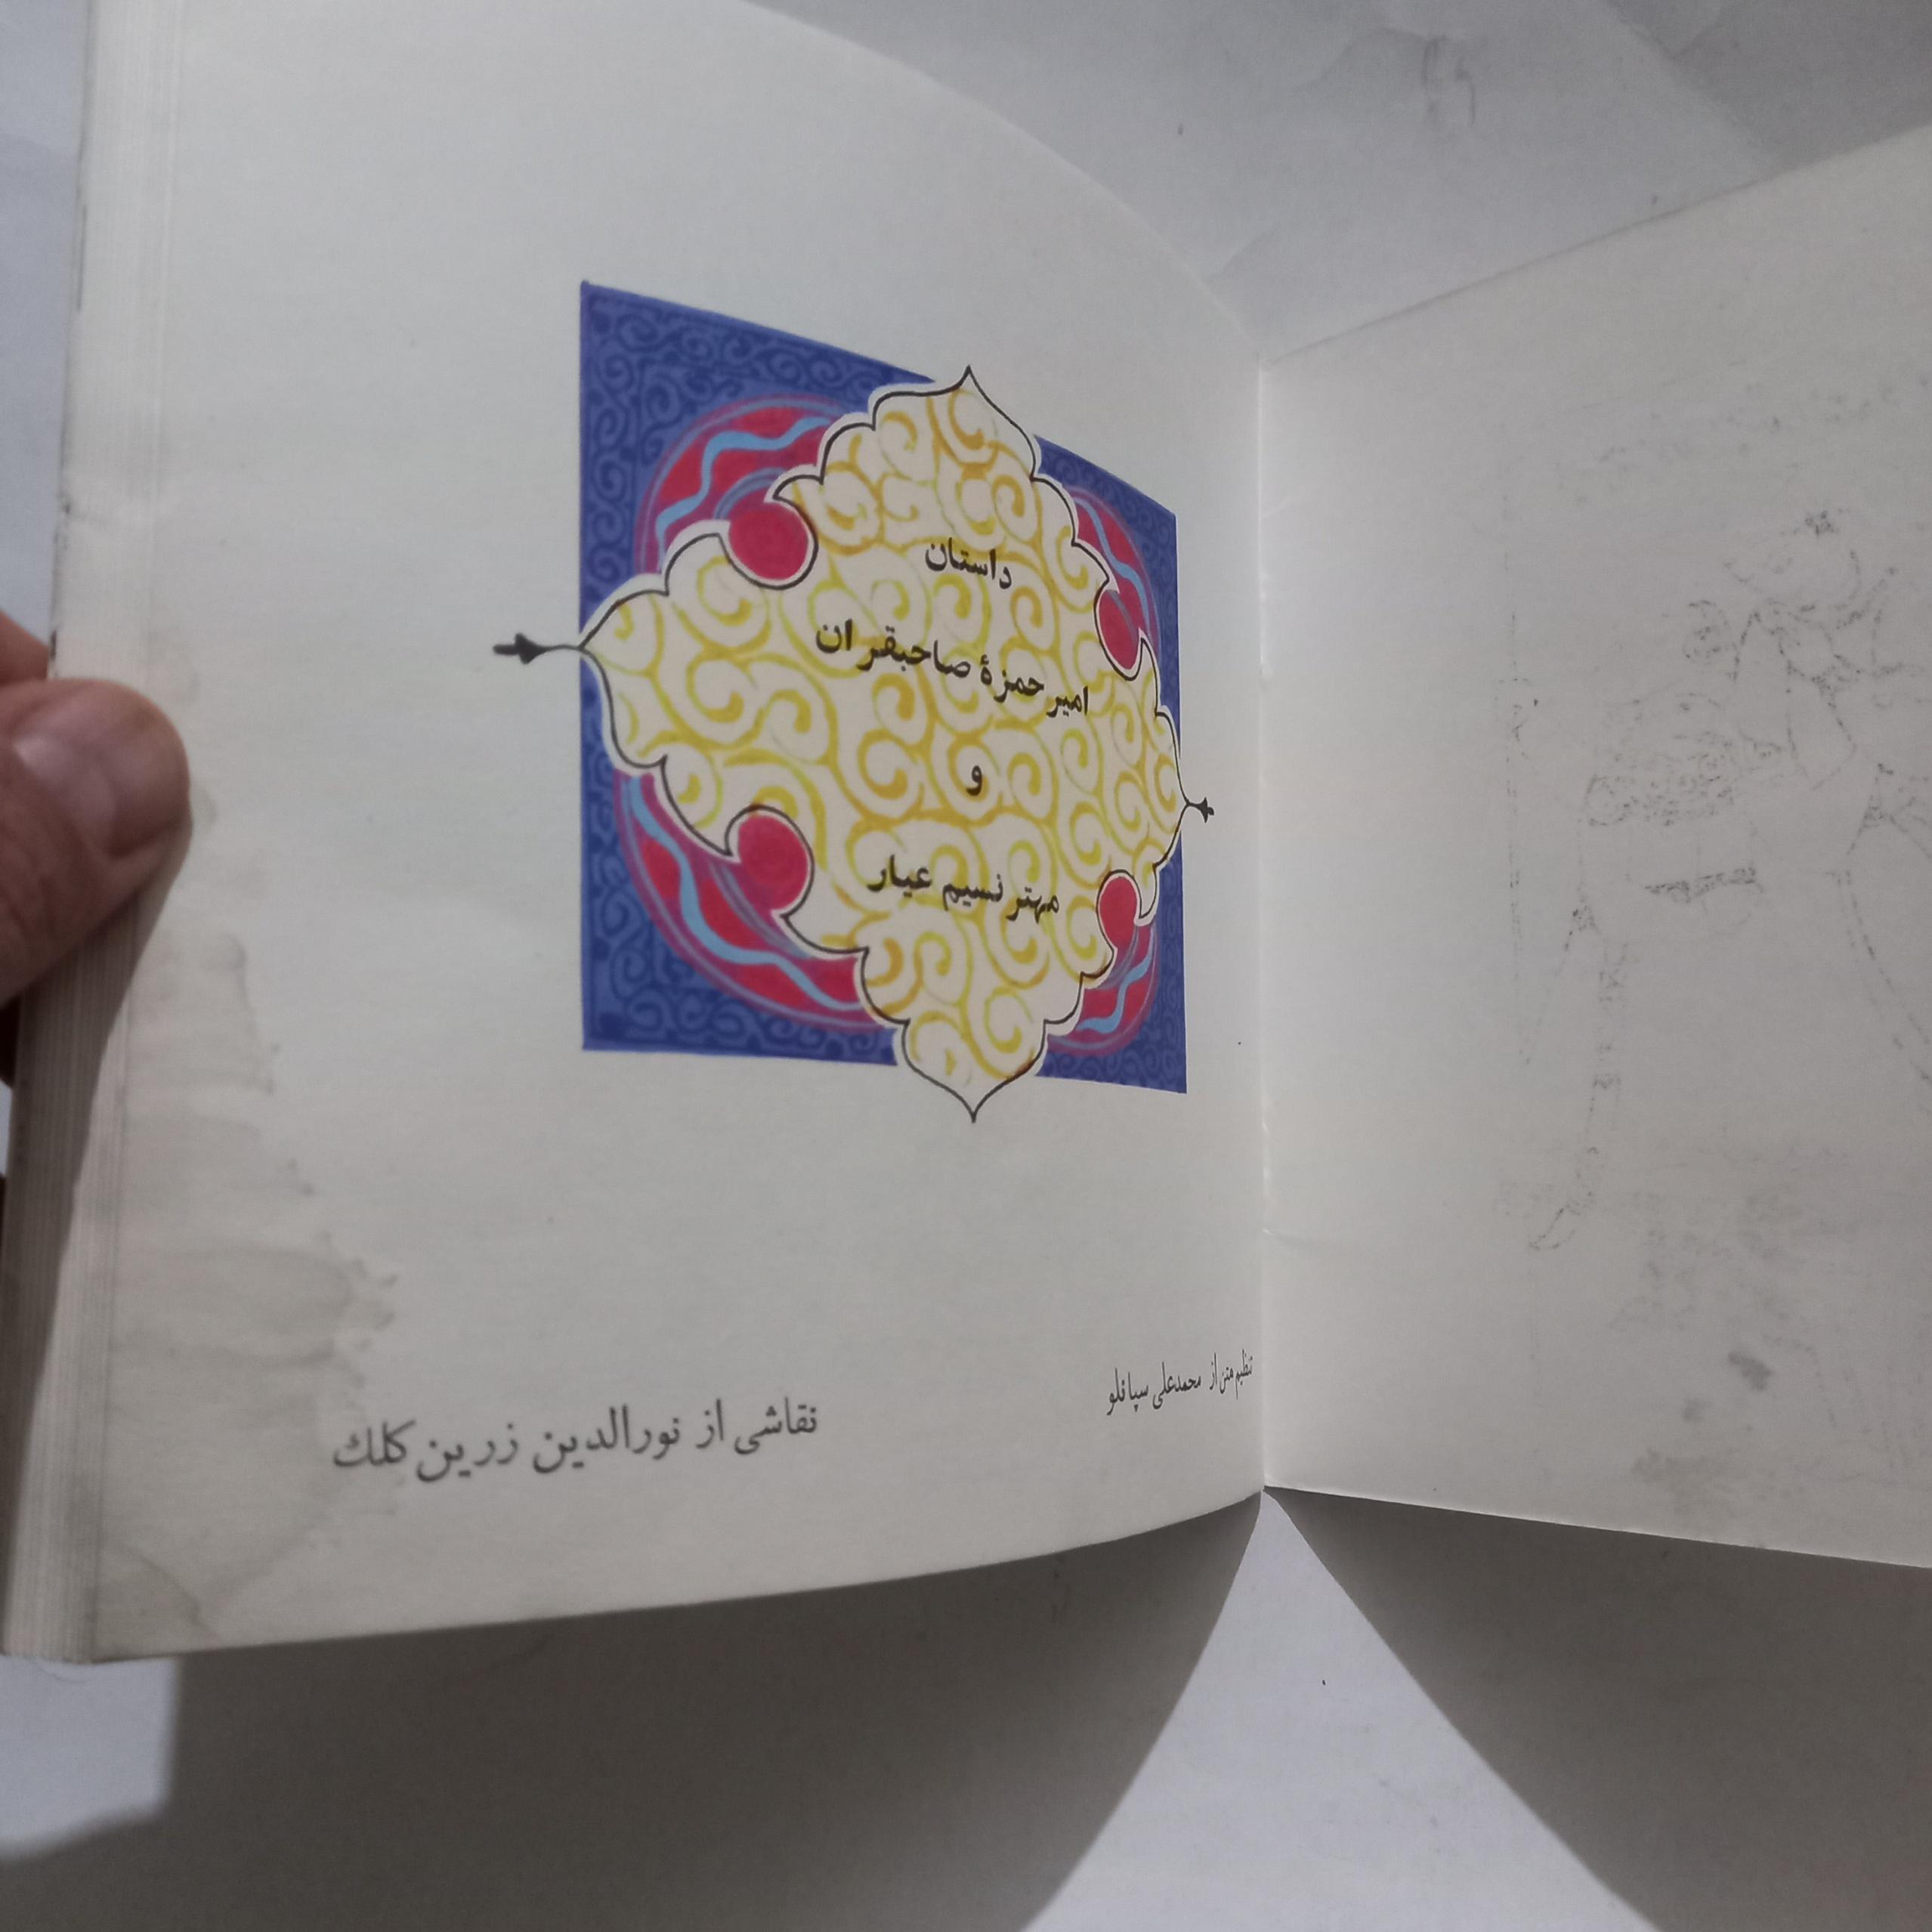 داستان
امیر حمزهٔ صاحبقران
و
مهتر نسیم عیار
تنظیم متن از محمدعلی سپانلو
نقاشی از نورالدین زرین‌کلك